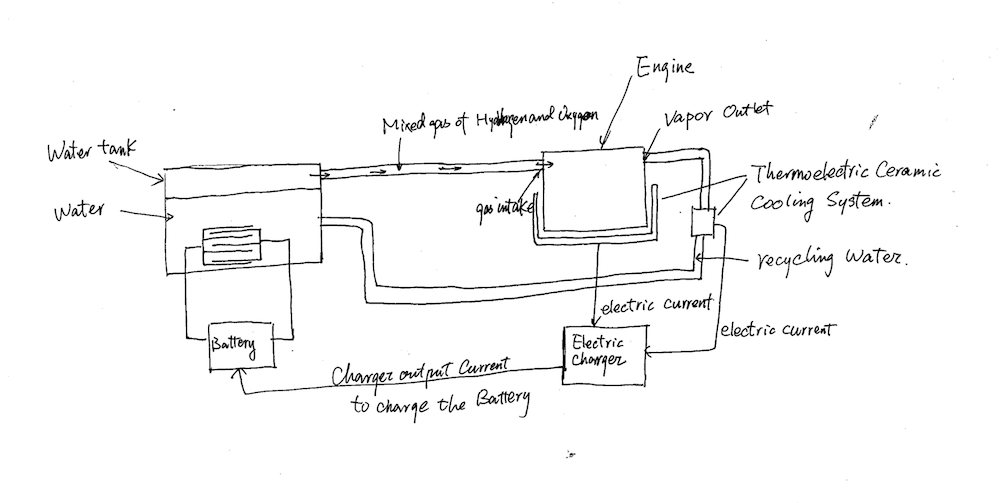 Engine
Mixed gas of Hydrogen and Oxygen
Vapor Outlet
Water tank
Thermoelectric Ceramic
Cooling System.
Water
gas intake
recycling Water.
electric current
electric current
Battery
Electric
Charger
Charger output Current
to charge the Battery